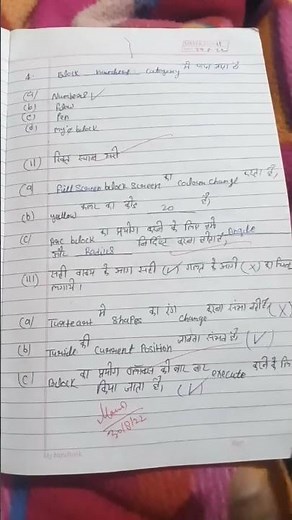 4 Block number category में
(a) Numbers ✓
(b) Flow
(c) Pen
(d) my's block
(ii) रिक्त स्थान भरो
(a) Fill Screen block screen का colour change करता है,
(b) yellow कलर का कोड 20 है,
(c) Arc block का प्रयोग करने के लिए हमें Angle
और Radius निर्दिष्ट करना होगा,
(iii) सही वाक्य के आगे सही (✓) गलत के आगे (X) का चिन्ह
लगाये।
(a) में shapes का रंग change करना संभव नहीं (X)
(b) की Current Position जानना संभव है (✓)
(c) Block का प्रयोग को बार बार execute करने के लि
किया जाता है, (✓)
30/8/22